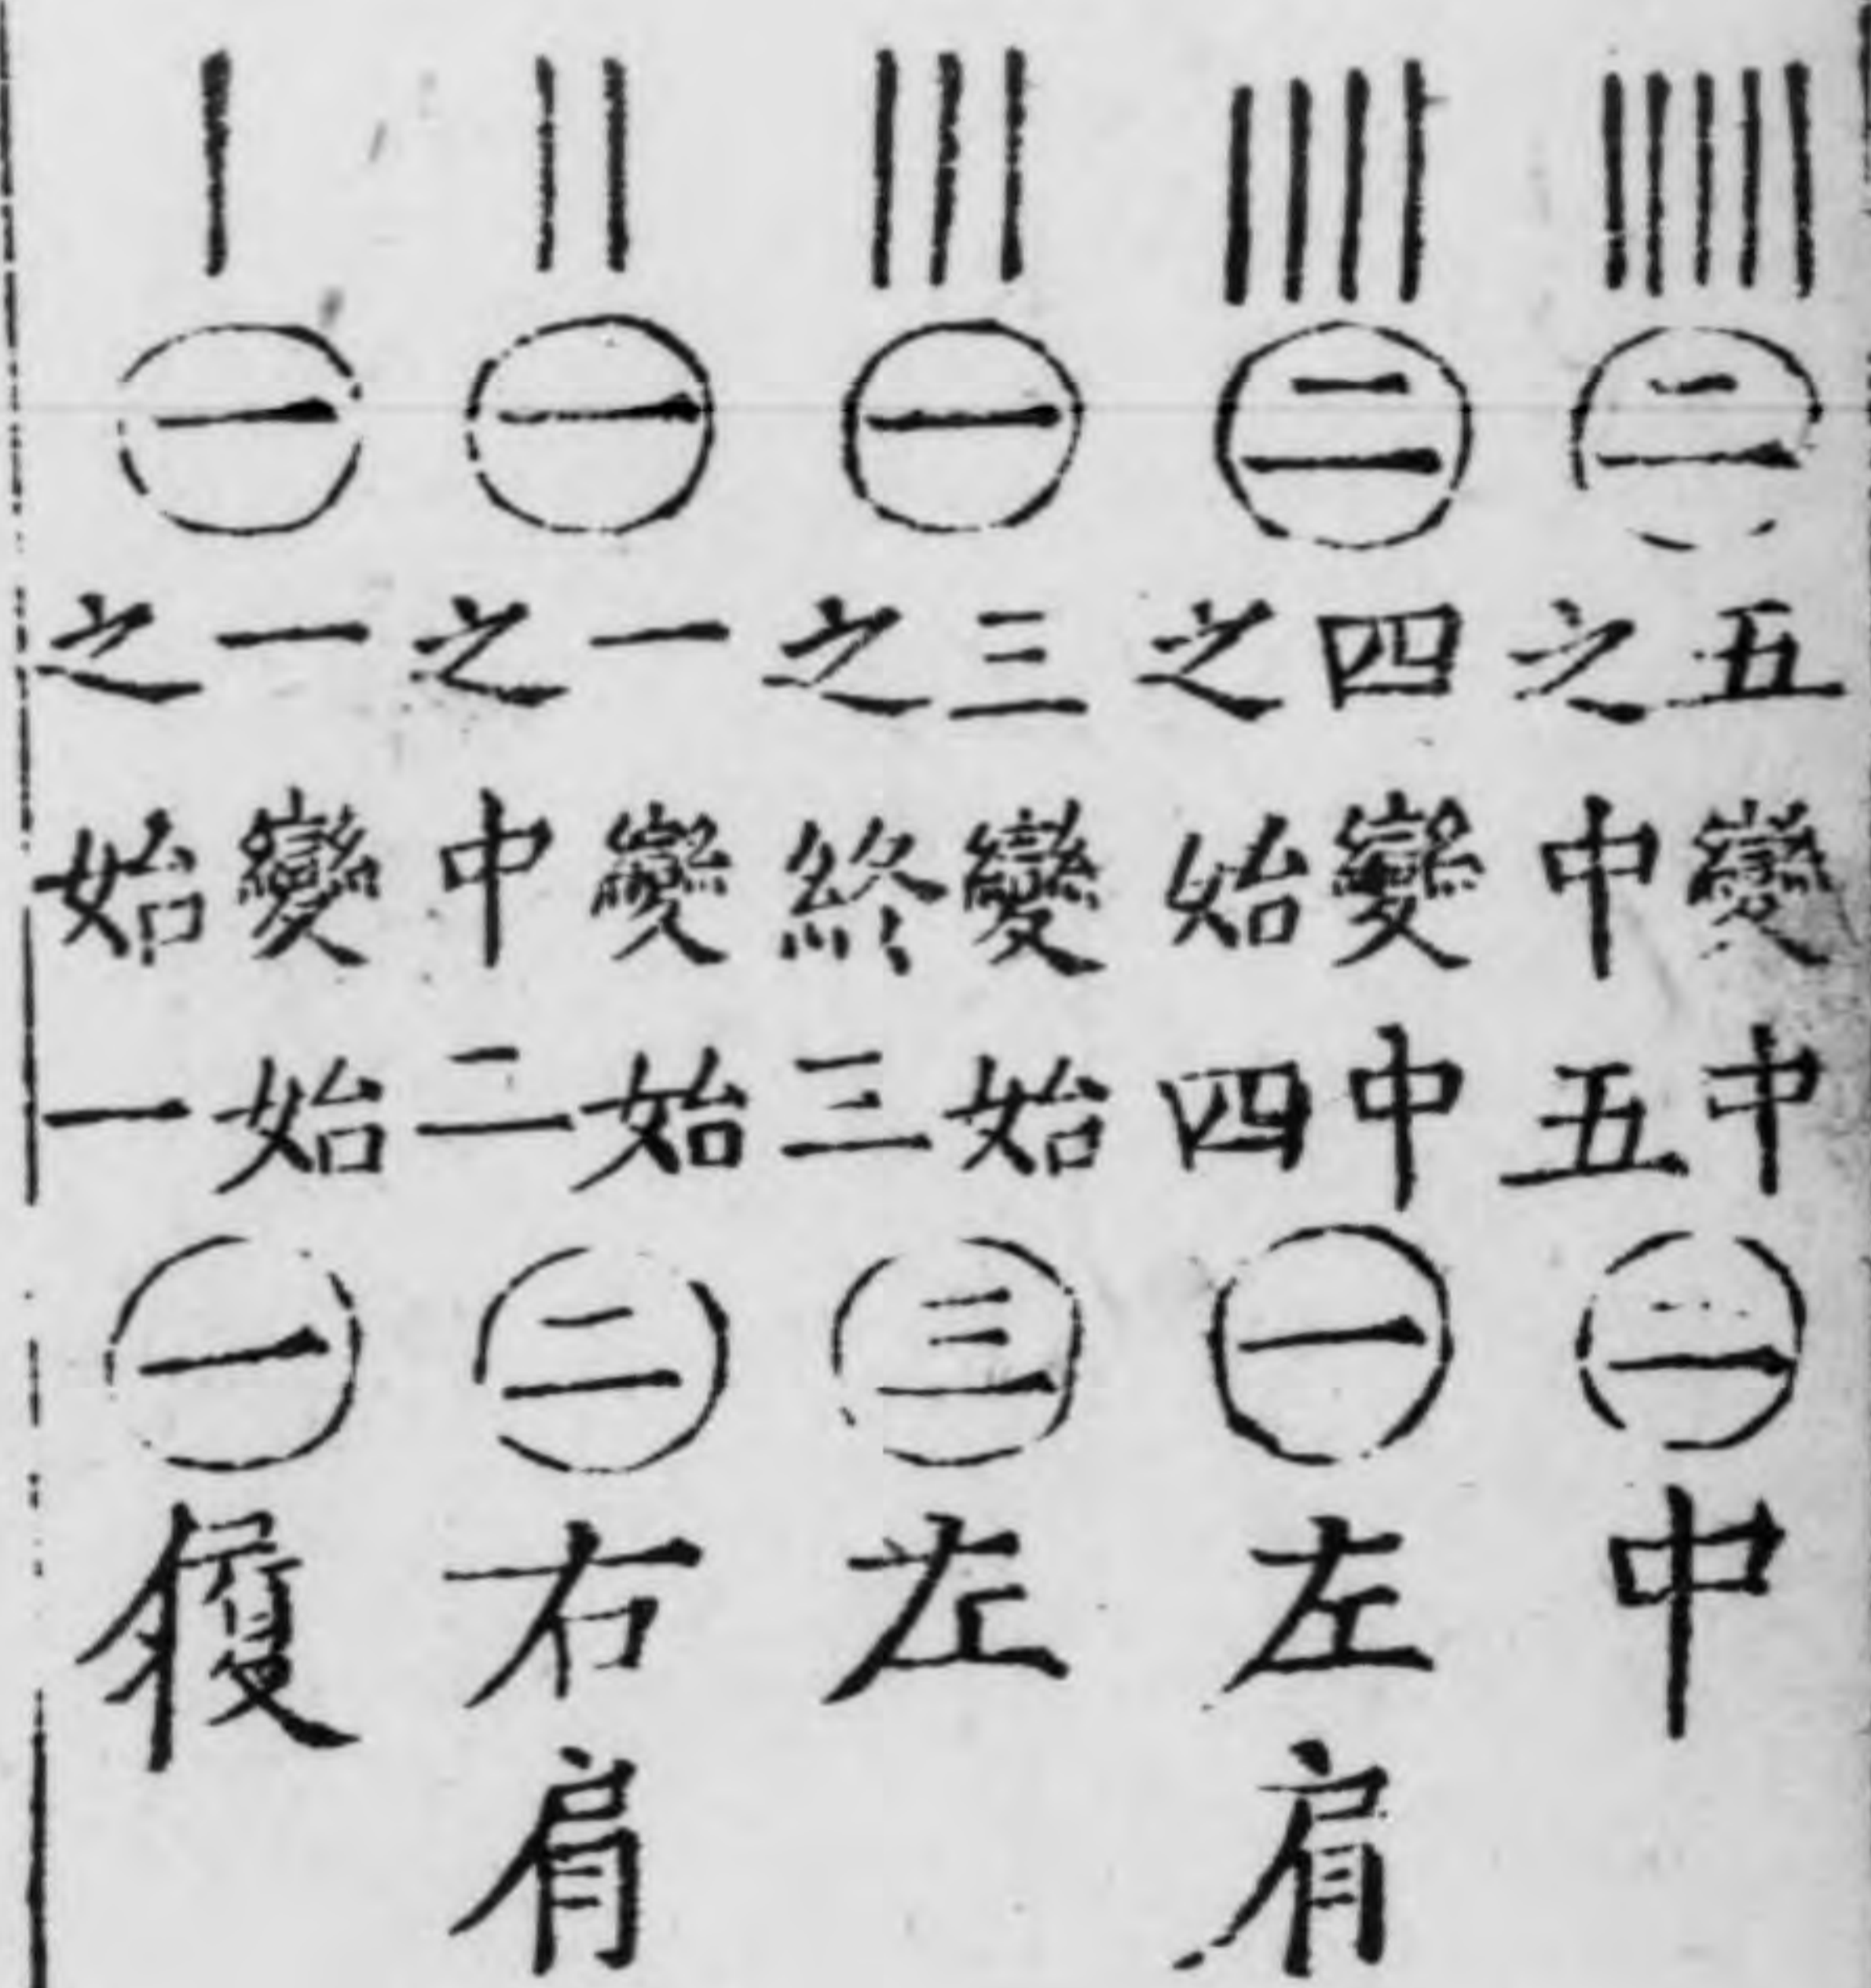 |||||
㊁
五變中
之中五
㊁
中
||||
㊁
四變中
之始四
㊀
左肩
|||
㊀
三變始
之終三
㊂
左
||
㊀
一變始
之中二
㊁
右肩
|
㊀
一變始
之始一
㊀
履